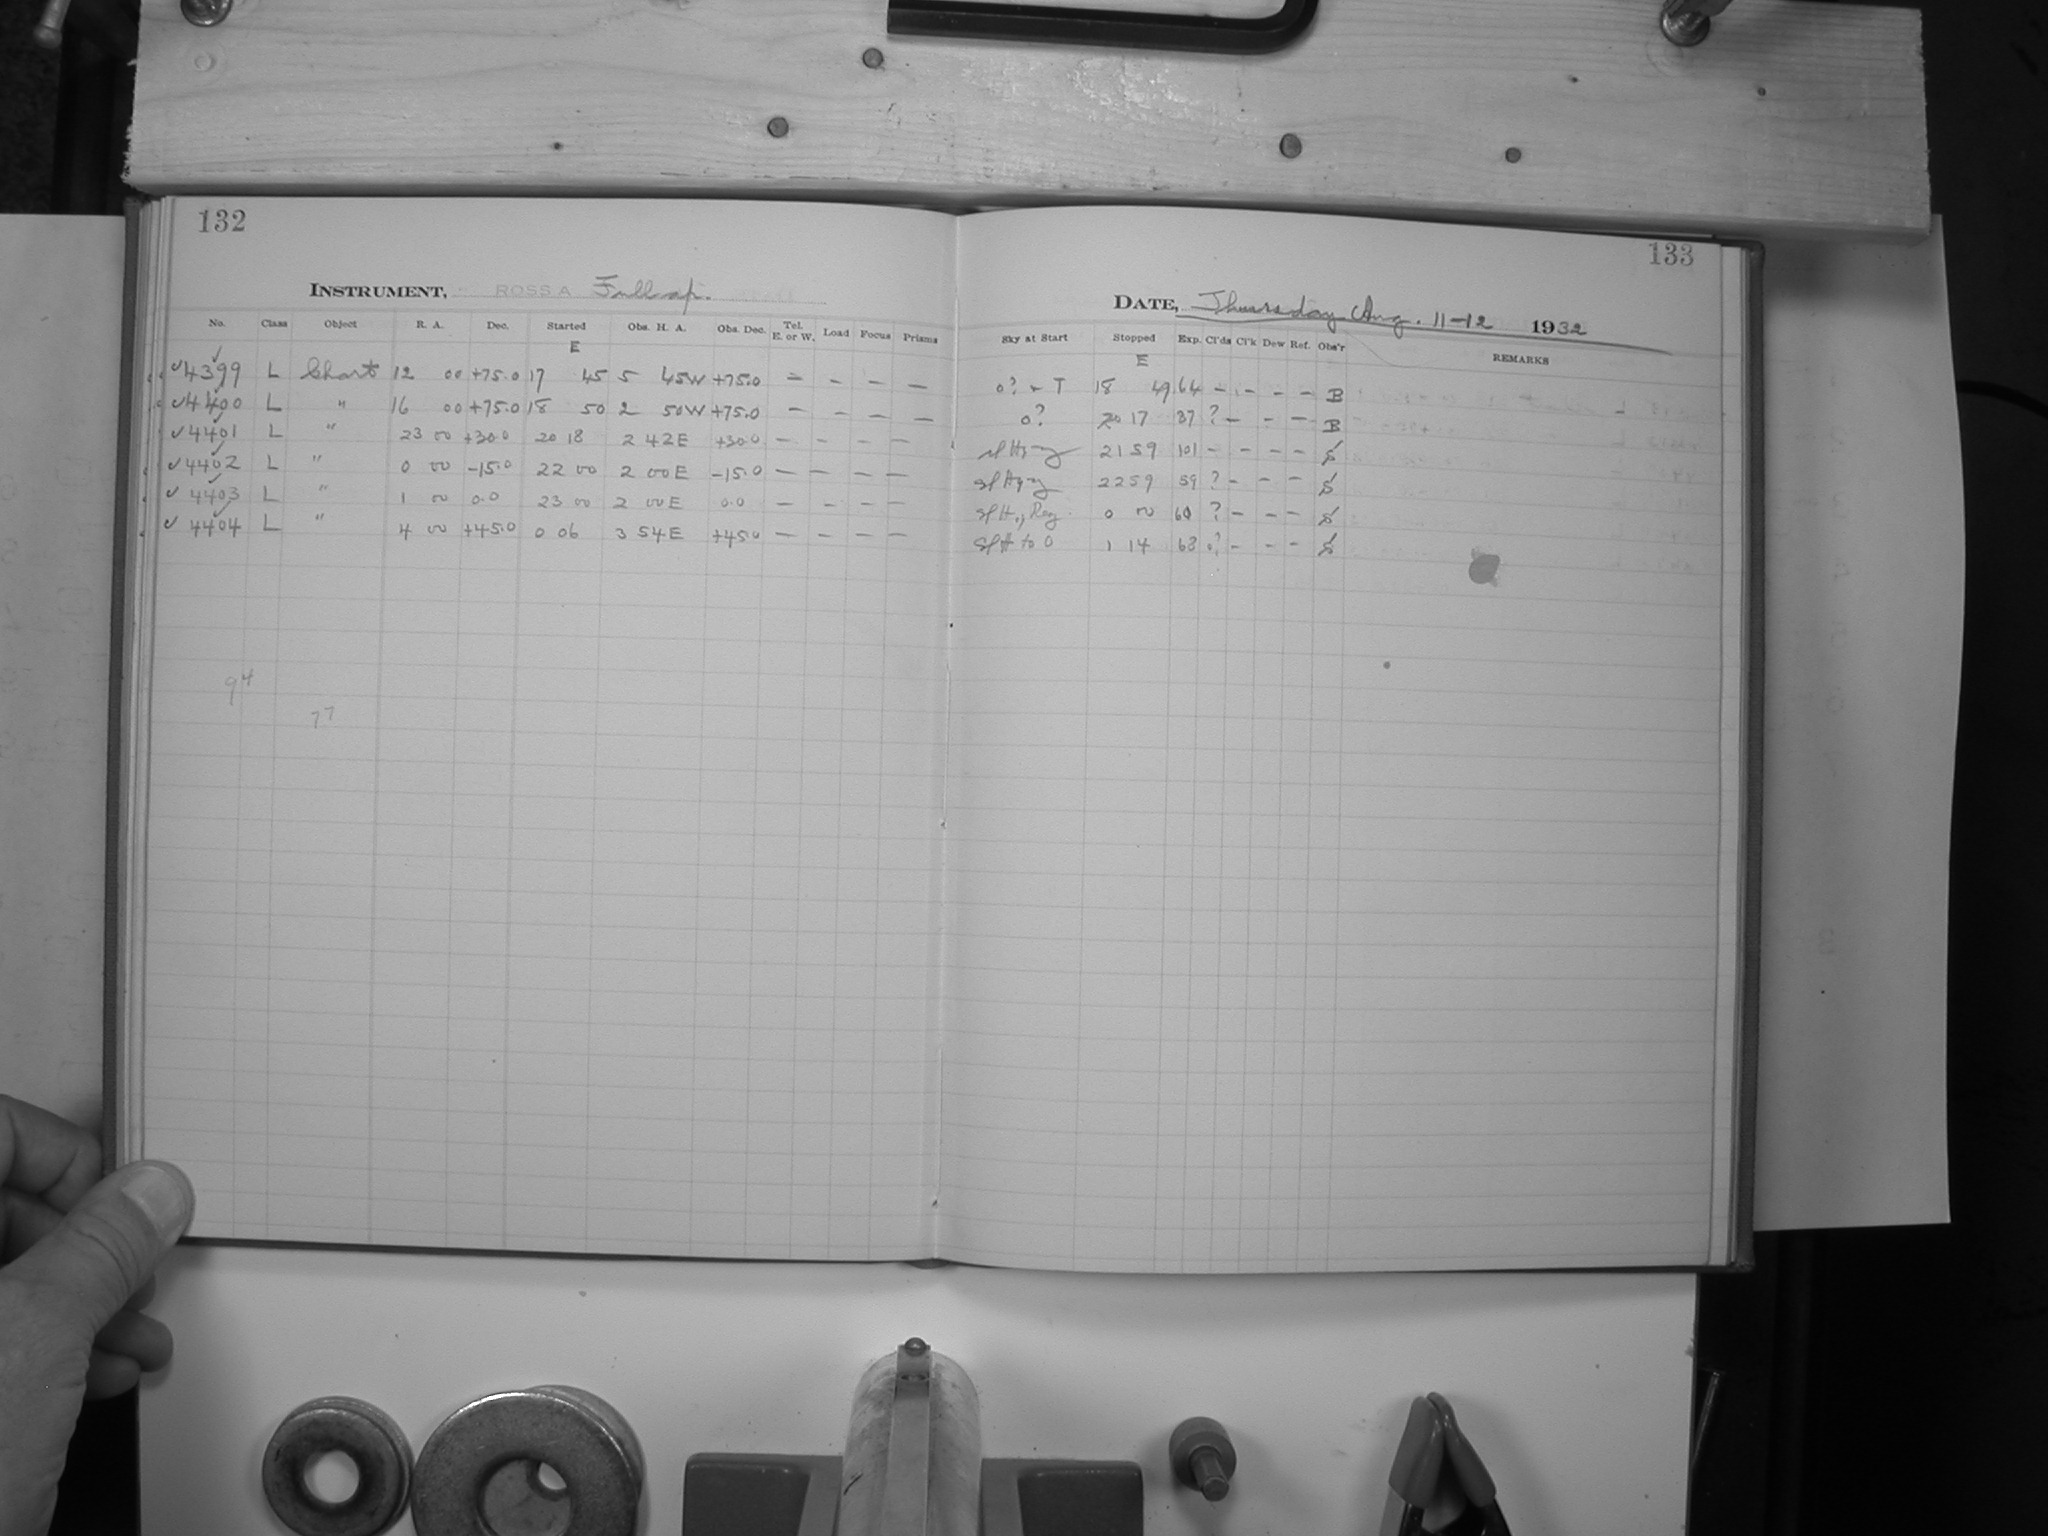 132
INSTRUMENT, ROSS A Full ap.
No. Class Object R. A. Dec. Started Obs. H. A. Obs. Dec. Tel. E. or W. Load Focus Prisms
E
✓4399 L Chart 12 00 +75.0 17 45 5 45W +75.0 – – – –
✓4400 L " 16 00 +75.0 18 50 2 50W +75.0 – – – –
✓4401 L " 23 00 +30.0 20 18 2 42E +30.0 – – – –
✓4402 L " 0 00 -15.0 22 00 2 00E -15.0 – – – –
✓4403 L " 1 00 0.0 23 00 2 00E 0.0 – – – –
✓4404 L " 4 00 +45.0 0 06 3 54E +45.0 – – – –
94
77
133
DATE, Thursday Aug. 11-12 1932
Sky at Start Stopped Exp. Cl'ds Cl'k Dew Ref. Obs'r REMARKS
E
0? T 18 49 64 – – – – B
0? 20 17 87 ? – – – B
sl H 21 59 101 – – – – S
sl H 22 59 59 ? – – – S
sl H 0 00 60 ? – – – S
sl H to 0 1 14 68 ? – – – S